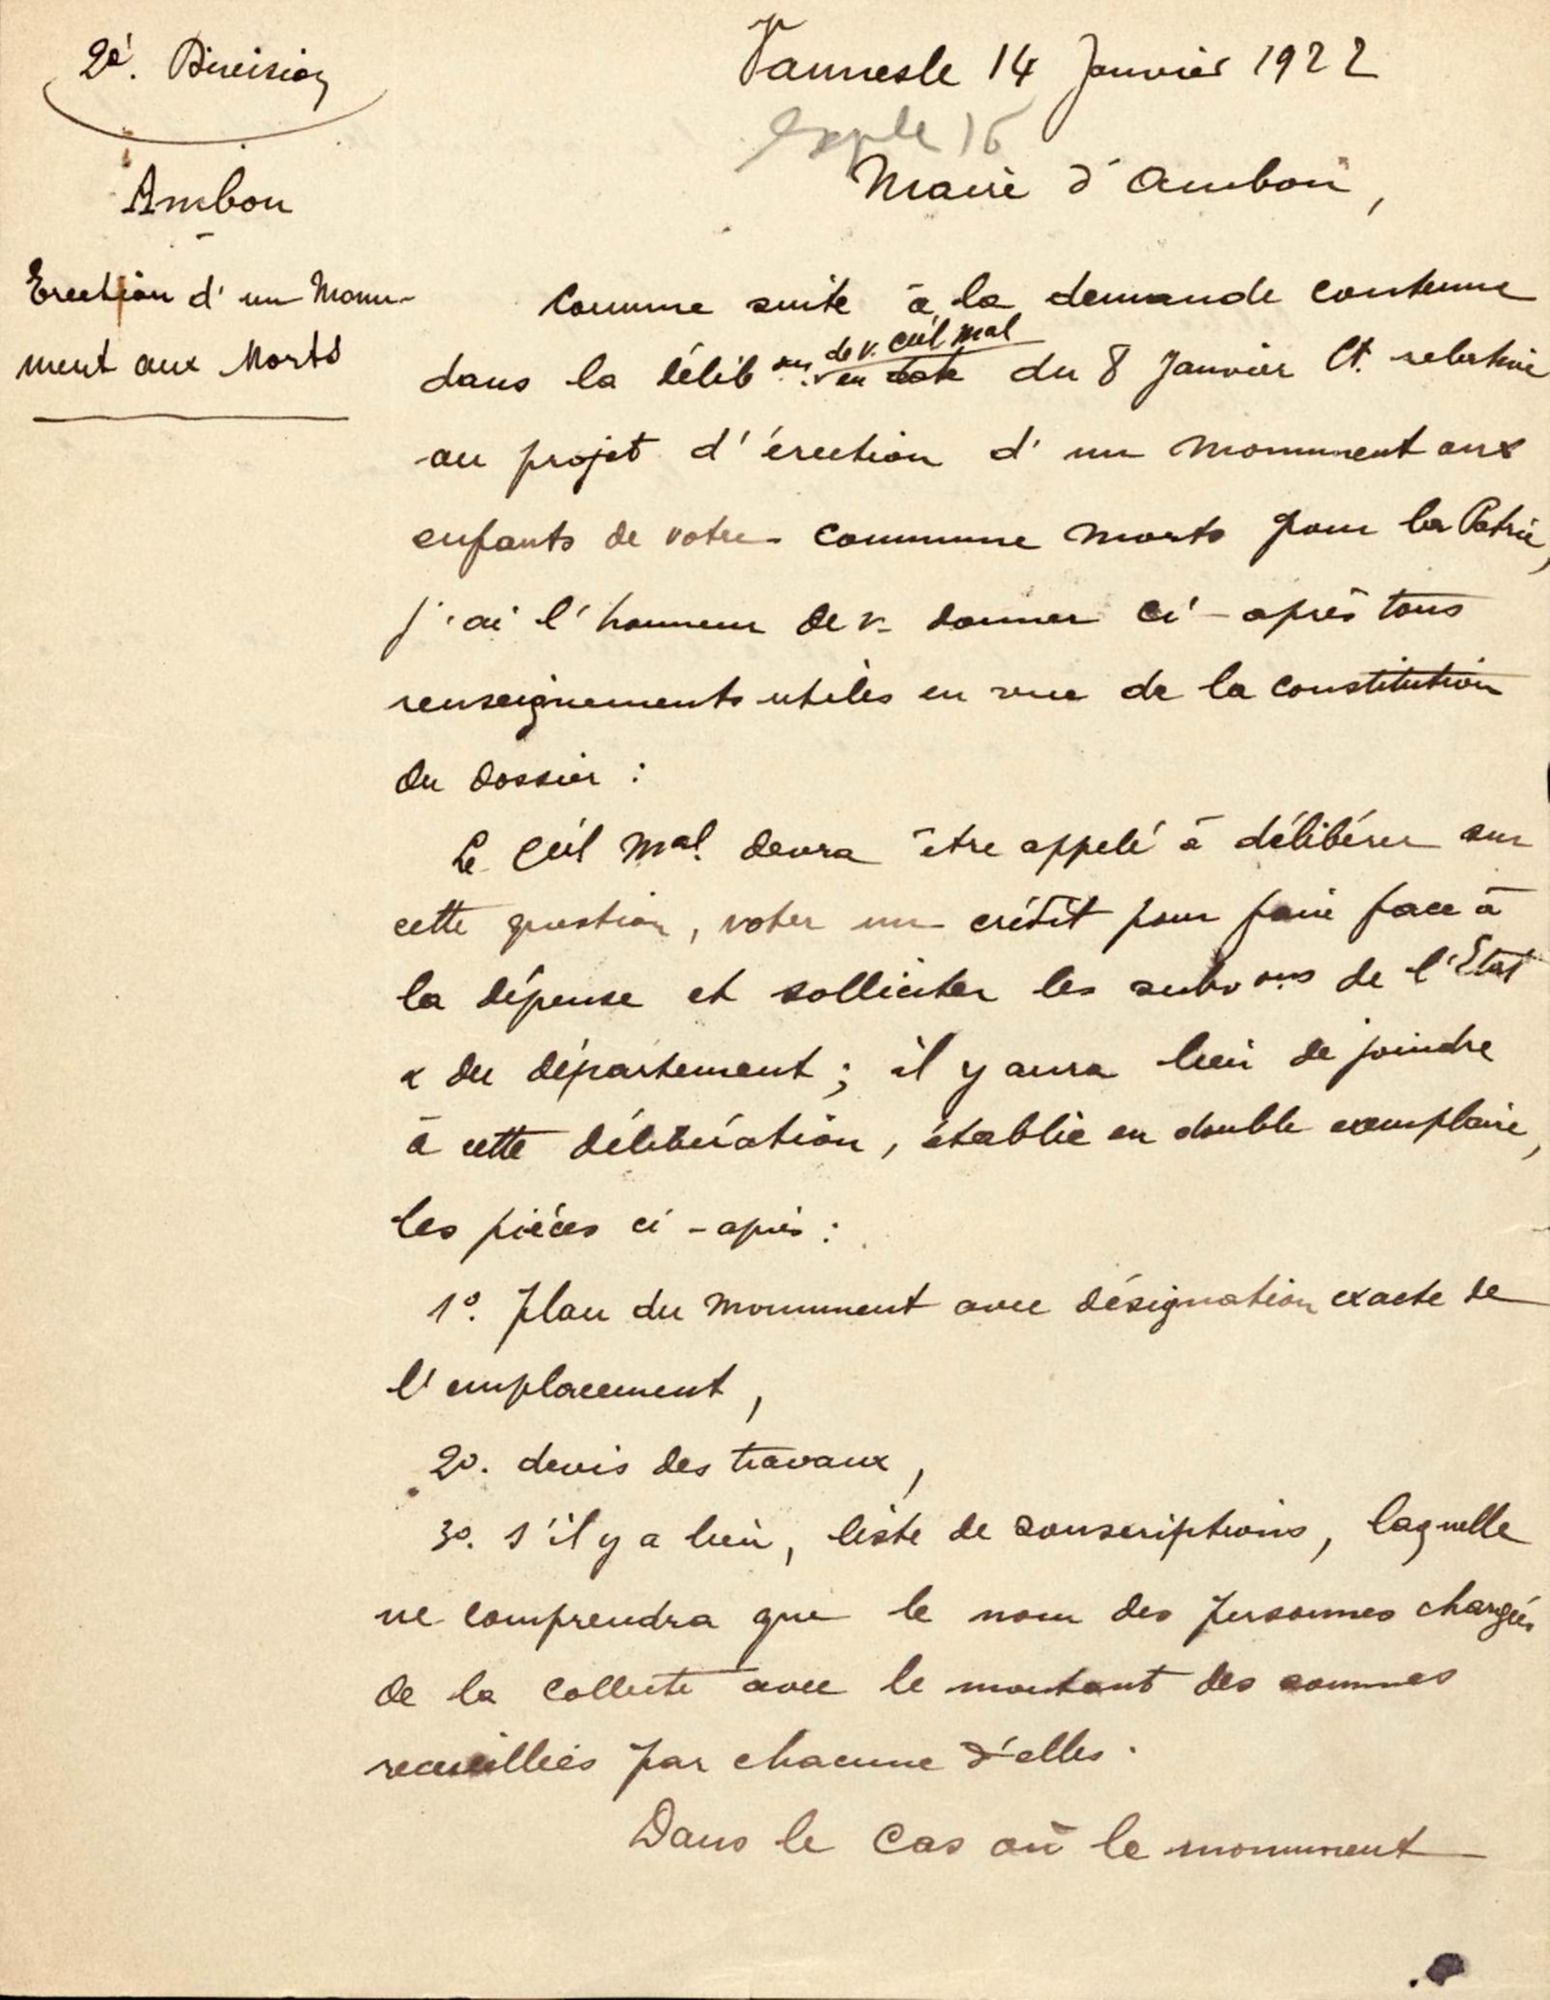 2è. Division
Ambon
Erection d'un Monu-
ment aux Morts
Vannes le 14 Janvier 1922
Maire d'Ambon,
Comme suite à la demande contenue
de v. Ceil Mal
dans la délib on. en date du 8 Janvier Ct. relative
au projet d'érection d'un Monument aux
enfants de votre commune Morts pour la Patrie,
j'ai l'honneur de v. donner ci-après tous
renseignements utiles en vue de la constitution
du dossier :
Le Ceil Mal. devra être appelé à délibérer sur
cette question, voter un crédit pour faire face à
la dépense et solliciter les subv ons de l'Etat
& du département ; il y aura lieu de joindre
à cette délibération, établie en double exemplaire,
les pièces ci-après :
1º. plan du Monument avec désignation exacte de
l'emplacement,
2º. devis des travaux,
3º. s'il y a lieu, liste de souscriptions, laquelle
ne comprendra que le nom des personnes chargées
de la collecte avec le montant des sommes
recueillies par chacune d'elles.
Dans le cas où le monument